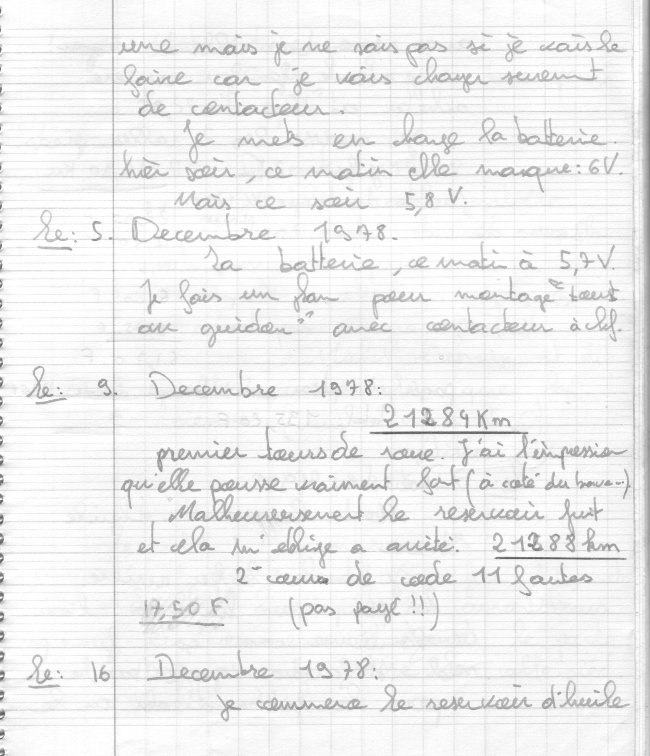 une mais je ne sais pas si je vais le
faire car je vais changer seulement
de contacteur.
Je mets en charge la batterie
hier soir, ce matin elle marque: 6V.
Mais ce soir 5,8 V.
Le: 5. Decembre 1978.
La batterie, ce matin à 5,7V.
Je fais un plan pour montage "tout
au guidon" avec contacteur à clef.
Le: 9. Decembre 1978:
21284 Km
premier tours de roue. J'ai l'impression
qu'elle pousse vraiment fort (à coté du
Malheureusement le reservoir fuit
et cela m'oblige a arreté. 21288 km
2e cours de code 11 fautes
17,50 F (pas payé !!)
Le: 16 Decembre 1978:
je commence le reservoir d'huile